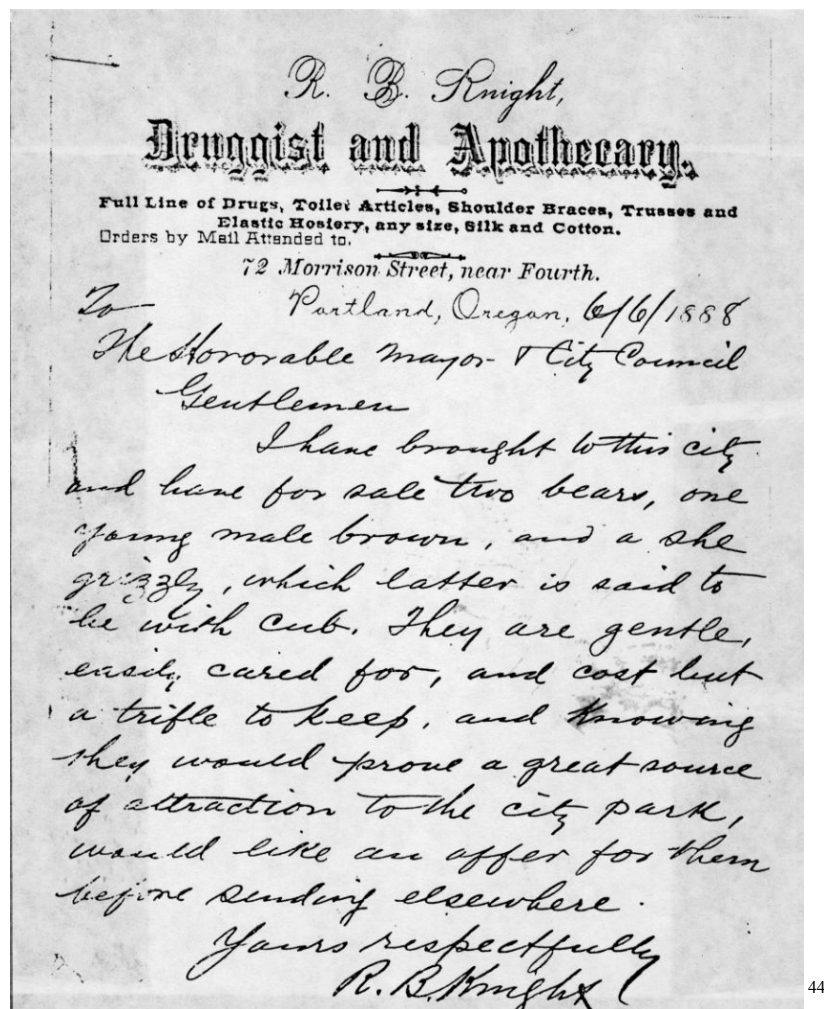 R. B. Knight,
Druggist and Apothecary.
Full Line of Drugs, Toilet Articles, Shoulder Braces, Trusses and
Elastic Hosiery, any size, Silk and Cotton.
Orders by Mail Attended to.
72 Morrison Street, near Fourth.
To Portland, Oregon, 6/6/1888
The Honorable Mayor & City Council
Gentlemen
I have brought to this city
and have for sale two bears, one
young male brown, and a she
grizzly, which latter is said to
be with cub. They are gentle,
easily cared for, and cost but
a trifle to keep, and knowing
they would prove a great source
of attraction to the city park,
would like an offer for them
before sending elsewhere.
Yours respectfully
R. B. Knight
44